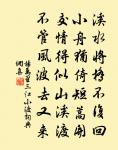 溪水將橋不復回
小舟猶倚短篙開
交情得似山溪渡
不管風波去又來
楊萬里三江小渡詞典
網集